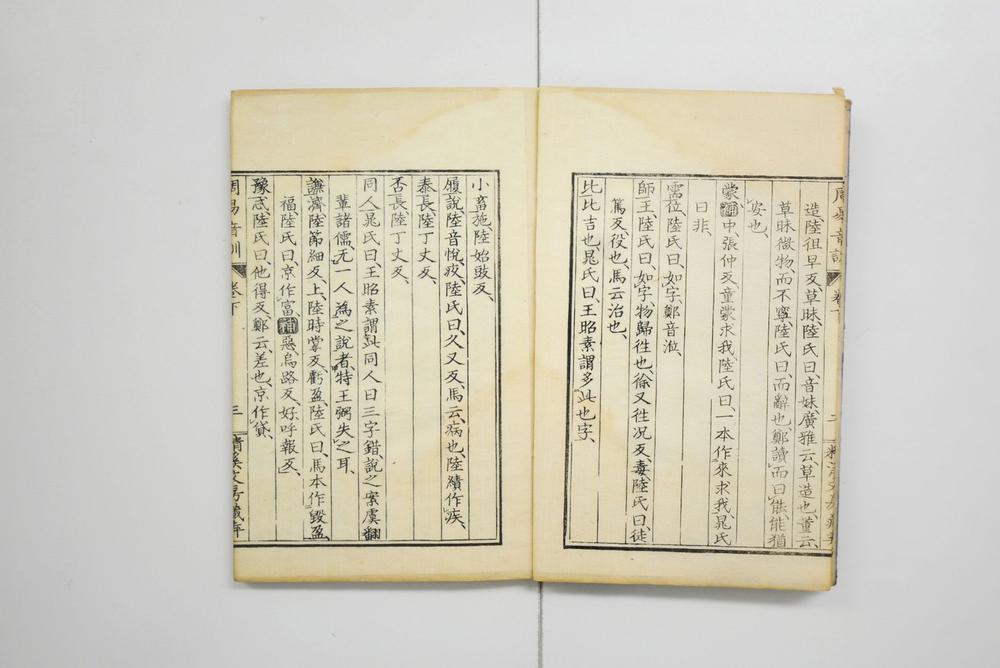 造、陸徂早反、草昧、陸氏曰、音妹、廣雅云、草造也、董云、
草昧微物、而不寧、陸氏曰、而辭也、鄭讀而曰能、能猶
安也、
蒙、補中、張仲反、童蒙求我、陸氏曰、一本作來求我、晁氏
曰非、
需、位、陸氏曰、如字、鄭音涖、
師、王、陸氏曰、如字、物歸徃也、徐又徃况反、毒、陸氏曰、徒
篤反、役也、馬云治也、
比、比吉也、晁氏曰、王昭素謂多此也字、
小畜、施、陸始豉反、
履、說、陸音悅、疚、陸氏曰、久又反、馬云、病也、陸績作疾、
泰、長、陸丁丈反、
否、長、陸丁丈反、
同人、晁氏曰、王昭素謂此同人曰三字錯、說之案虞翻
輩諸儒、无一人為之說者、特王弼失之耳、
謙、濟、陸節細反、上、陸時掌反、虧盈、陸氏曰、馬本作毀盈、
福、陸氏曰、京作富、補惡、烏路反、好、呼報反、
豫、忒、陸氏曰、他得反、鄭云、差也、京作貣、
周易音訓 卷下 三